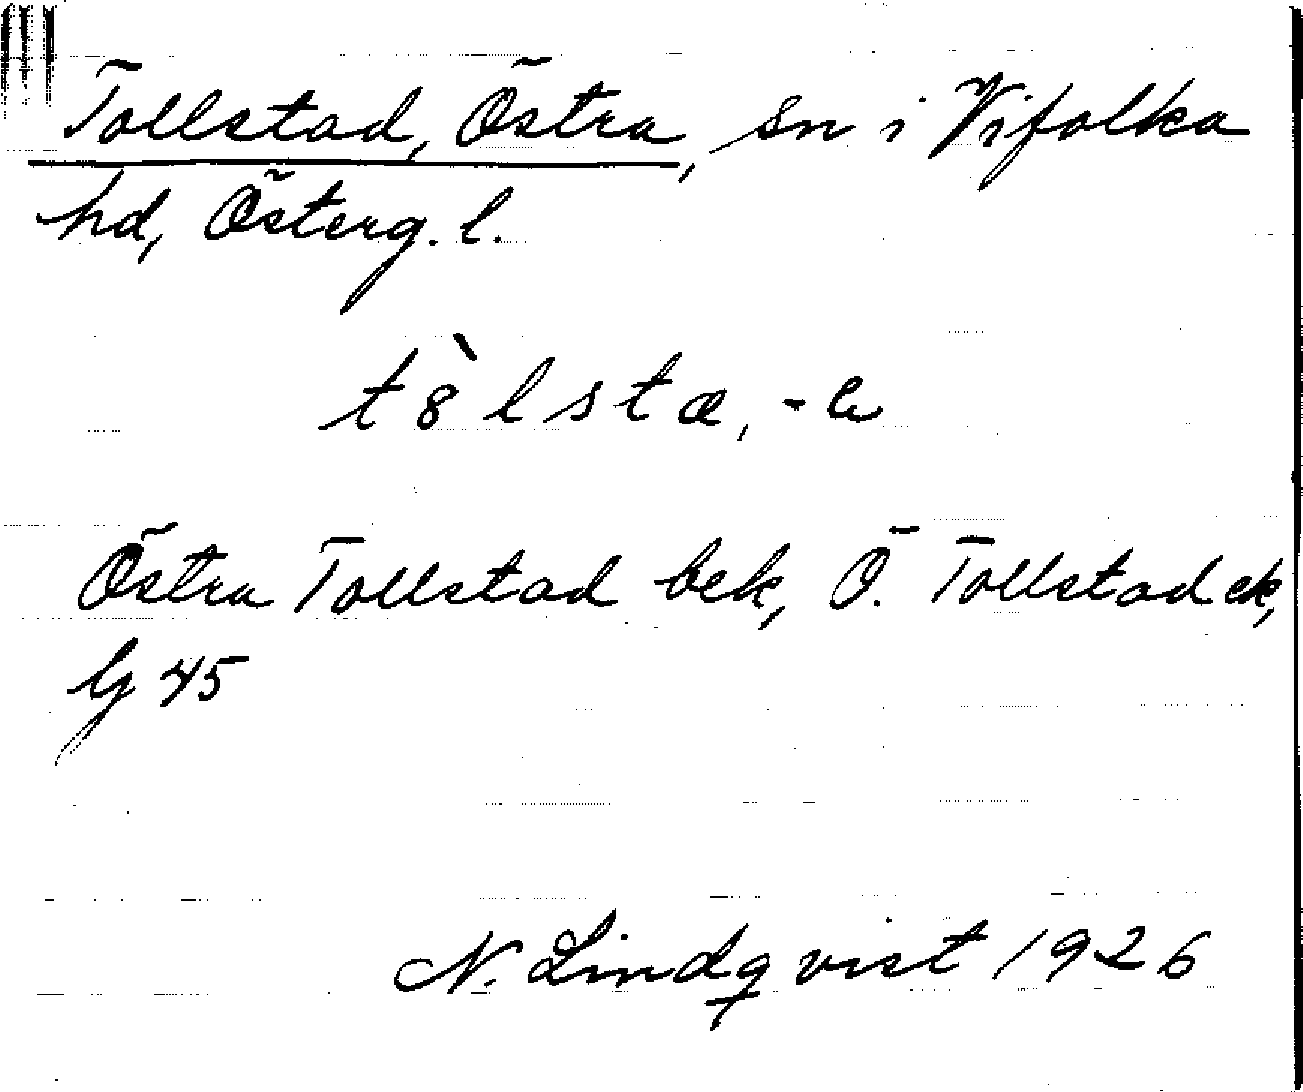 Tollstad, Östra, sn i Vifolka
hd, Österg. l.
t8̀lstæ, -a
Östra Tollstad bek, Ö. Tollstad ek,
lg 45
N. Lindqvist 1926